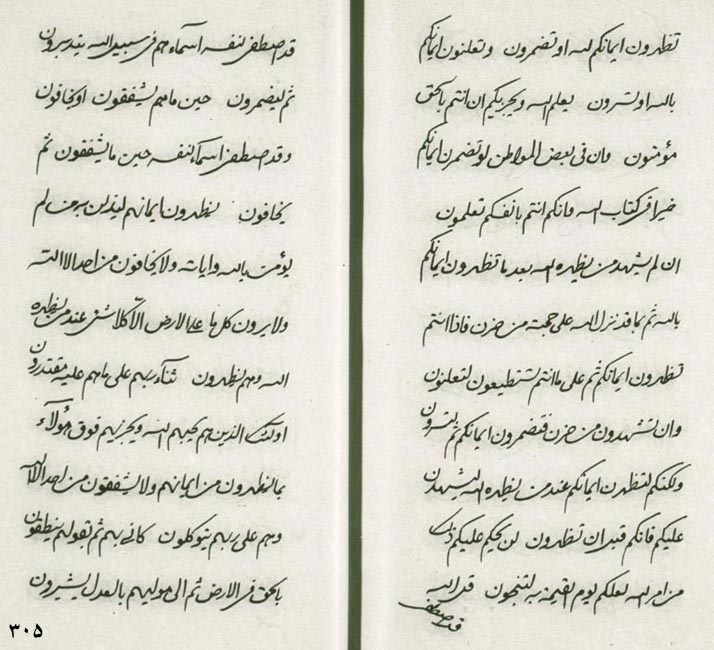 تظهرون ايمانكم لله او تضمرون وتعلنون ايمانكم
بالله او تسرون يعلم الله ويجزيكم ان انتم بالحق
مؤمنون وان فى بعض المواطن لو تضمرن ايمانكم
خير فى كتاب الله فانكم انتم بانفسكم تعلمون
ان لم يشهد من يظهره الله بعد ما تظهرون ايمانكم
بالله ثم بما قد نزل الله على حجته من حزن فاذا انتم
تظهرون ايمانكم ثم على ما انتم تستطيعون لتعلنون
وان تشهدون من حزن فتضمرون ايمانكم ثم تسرون
ولكنكم لتظهرن ايمانكم عند من يظهره الله ليشهدن
عليكم فانكم قبل ان تظهرون لن يحكم عليكم ذلك
من امر الله لعلكم يوم القيمة به لتنجون قل الله
قد اصطفى
قد اصطفى لنفسه اسماء هم فى سبيل الله
ثم ليضمرون حين ما هم يشفقون او يخافون
وقد اصطفى اسماء لنفسه حين ما يشفقون ثم
يخافون يظهرون ايمانهم لم
يؤمن بالله واياته ولا يخافون من احد الا الله
ولا يرون كل ما على الارض الا كلاشئ عند من يظهره
الله وهم يظهرون ثناء ربهم على ما هم عليه مقتدرون
اولئك الذين هم يحبهم الله ويجزيهم فوق هؤلاء
بما يظهرون من ايمانهم ولا يشفقون من احد الا الله
وهم على ربهم يتوكلون كانى بهم ثم بقولهم ينطقون
بالحق فى الارض ثم الى موليهم بالعدل يشيرون
٣٠٥